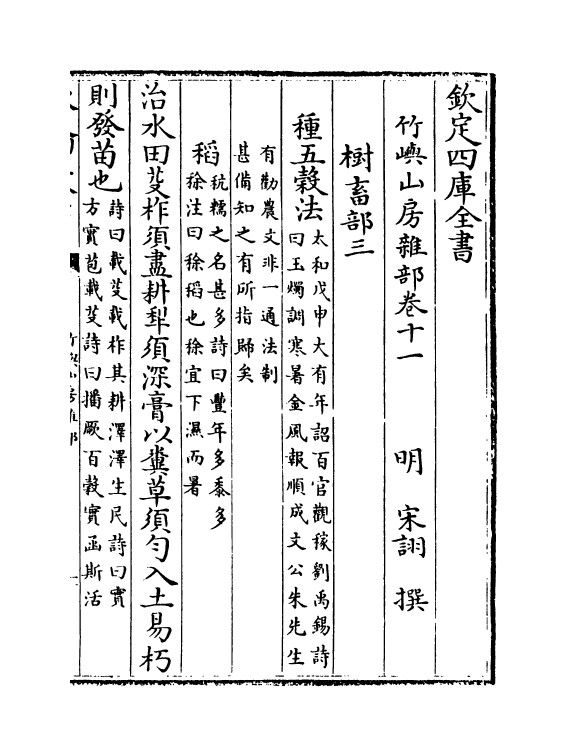 欽定四庫全書
竹嶼山房雜部卷十一
明 宋詡 撰
樹畜部三
種五穀法
太和戊申大有年詔百官觀稼劉禹錫詩
曰玉燭調寒暑金風報順成文公朱先生
有勸農文非一通法制
甚備知之有所指歸矣
稻
秔糯之名甚多詩曰豐年多黍多
稌注曰稌稻也稌宜下濕而暑
治水田芟柞須盡耕犁須深膏以糞草須勻入土易朽
則發苗也
詩曰載芟載柞其耕澤澤生民詩曰實
方實苞載芟詩曰播厥百穀實函斯活